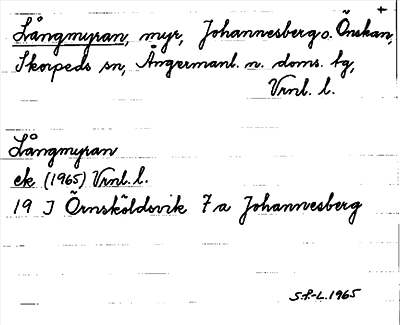 +
Långmyran, myr, Johannesberg o. Önskan,
Skorpeds sn, Ångermanl. n. doms. tg,
Vrnl. l.
Långmyran
ek (1965) Vrnl. l.
19 J Örnsköldsvik 7 a Johannesberg
S.P-L. 1965